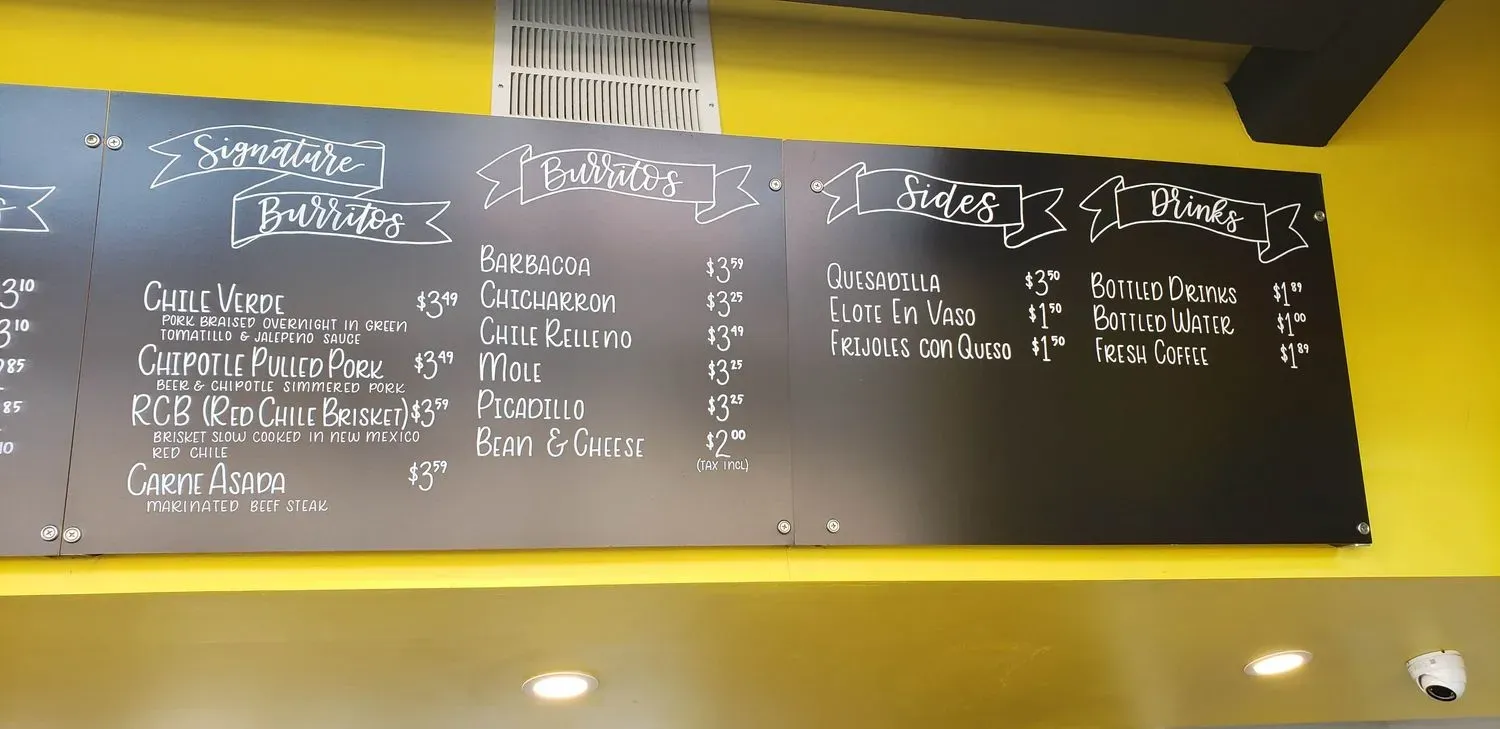 3.10
3.10
85
85
10
Signature
Burritos
CHILE VERDE $3.49
PORK BRAISED OVERNIGHT IN GREEN
TOMATILLO & JALEPENO SAUCE
CHIPOTLE PULLED PORK $3.49
BEER & CHIPOTLE SIMMERED PORK
RCB (RED CHILE BRISKET) $3.59
BRISKET SLOW COOKED IN NEW MEXICO
RED CHILE
CARNE ASADA $3.59
MARINATED BEEF STEAK
Burritos
BARBACOA $3.59
CHICHARRON $3.25
CHILE RELLENO $3.49
MOLE $3.25
PICADILLO $3.25
BEAN & CHEESE $2.00
(TAX INCL)
Sides
QUESADILLA $3.50
ELOTE EN VASO $1.50
FRIJOLES CON QUESO $1.50
Drinks
BOTTLED DRINKS $1.89
BOTTLED WATER $1.00
FRESH COFFEE $1.89